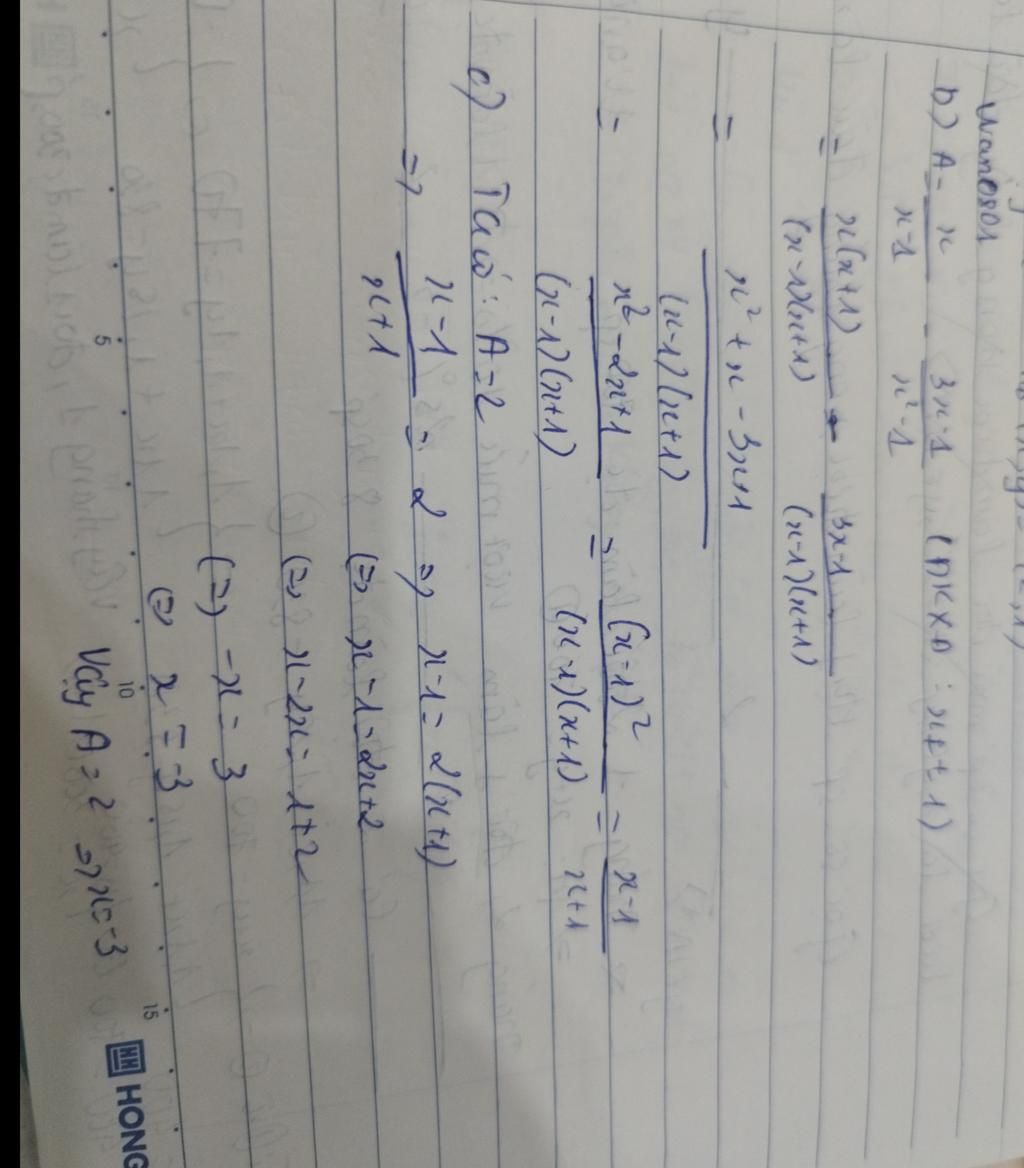 b) A = x/(x-1) - (3x-1)/(x²-1) (ĐKXĐ : x ≠ ± 1)
= x(x+1)/((x-1)(x+1)) - (3x-1)/((x-1)(x+1))
= (x² + x - 3x+1)/((x-1)(x+1))
= (x²-2x+1)/((x-1)(x+1)) = (x-1)²/((x-1)(x+1)) = (x-1)/(x+1)
c) Ta có: A=2
=> (x-1)/(x+1) = 2 => x-1 = 2(x+1)
(=) x-1=2x+2
(=) x-2x=1+2
(=) -x=3
(=) x=-3
Vậy A=2 => x=-3
5 10 15 HONG